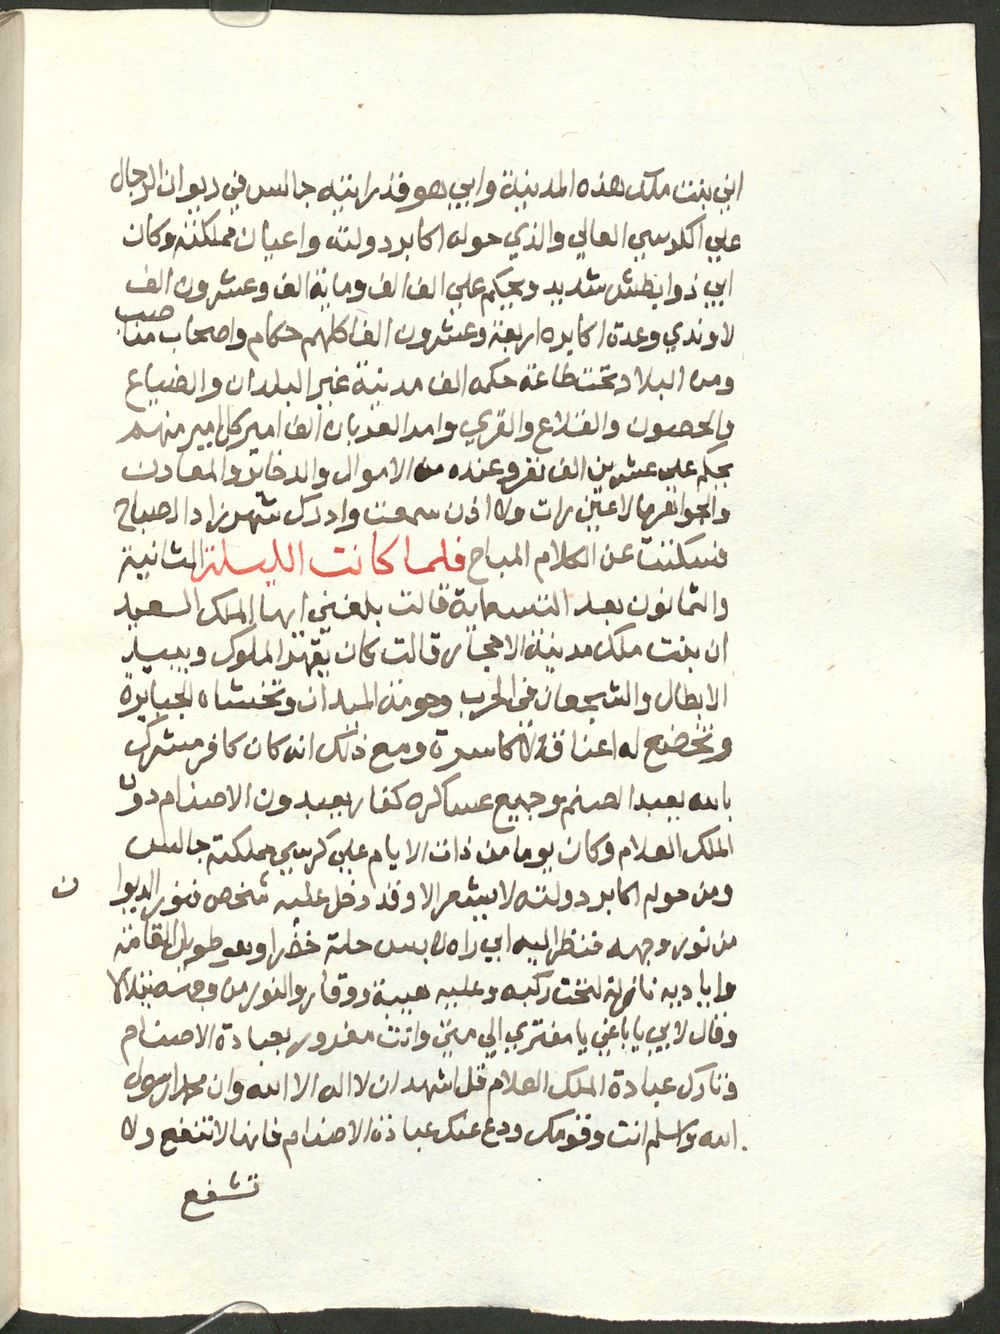 اني بنت ملك هذه المدينة وابي هو قد رايتيه جالس في ديوان الرجال
علي الكرسي العالي والذي حوله اكابر دولته واعيان مملكته وكان
ابي ذوا بطش شديد ويحكم علي الف الف وماية الف وعشرون الف
لاوندي وعدة اكابره اربعة وعشرون الفا كلهم حكام واصحاب مناصب
ومن البلاد تحت طاعة حكمه الف مدينة غير البلدان والضياع
والحصون والقلاع والقري وامرا العربان الف امير كل امير منهم
يحكم علي عشرين الف نفر وعنده من الاموال والدخاير والمعادن
والجواهر ما لا عين رات ولا اذن سمعت وادرك شهرزاد الصباح
فسكتت عن الكلام المباح فلما كانت الليلة الثانية
والثمانون بعد التسعماية قالت بلغني ايها الملك السعيد
ان بنت ملك مدينة الاحجار قالت كان يقهر الملوك ويبيد
الابطال والشجعان في الحرب وحومة الميدان وتخشاه الجبابرة
وتخضع له اعناق الاكاسرة ومع ذلك انه كان كافر مشرك
بالله يعبد الصنم وجميع عساكره كفار يعبدون الاصنام دون
الملك العلام وكان يوما من ذات الايام علي كرسي مملكته جالس
ومن حوله اكابر دولته لا يشعر الا وقد دخل عليه شخص فنور الديوان
من نور وجهه فنظر اليه ابي راه لابس حلة خضرا وهو طويل القامة
واياديه نازلة لتحت ركبه وعليه هيبة ووقار والنور من وجهه يتلالا
وقال لابي يا باغي يا مفتري الي متي وانت مغرور بعبادة الاصنام
وتارك عبادة الملك العلام قل اشهد ان لا اله الا الله وان محمدا رسول
الله واسلم انت وقومك ودع عنك عبادة الاصنام فانها لا تنفع ولا
تشفع